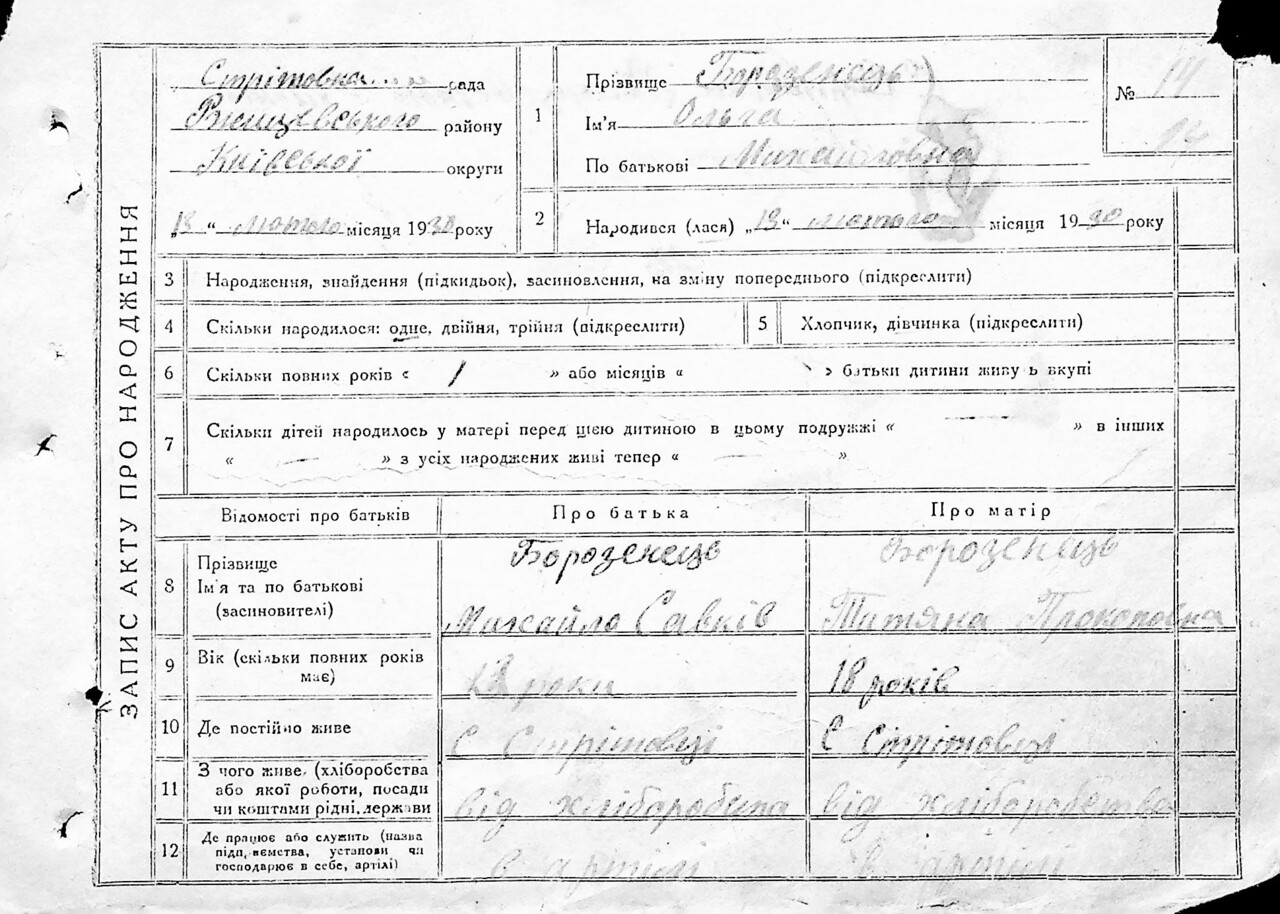 ЗАПИС АКТУ ПРО НАРОДЖЕННЯ
Стрітовка сада
Ржищевського району
Київської округи
„18“ лютого місяця 1930 року
1
Прізвище Борозенець
Ім'я Ольга
По батькові Михайловна
№ 14
14
2
Народився (лася) „13“ лютого місяця 1930 року
3 Народження, знайдення (підкидьок), засиновлення, на зміну попереднього (підкреслити)
4 Скільки народилося: одне, двійня, трійня (підкреслити)
5 Хлопчик, дівчинка (підкреслити)
6 Скільки повних років « / » або місяців « » батьки дитини живуть вкупі
7 Скільки дітей народилось у матері перед цією дитиною в цьому подружжі « — » в інших
« — » з усіх народжених живі тепер « — »
Відомості про батьків Про батька Про матір
8 Прізвище
Ім'я та по батькові
(засиновителі)
Борозенець
Михайло Савків
Борозенець
Титяна Прокоповна
9 Вік (скільки повних років
має)
роки
18 років
10 Де постійно живе
С Стрітовці
С Стрітовці
11 З чого живе, (хліборобства
або якої роботи, посади
чи коштами рідні, держави
від хліборобства
від хліборобства
12 Де працює або служить (назва
підприємства, установи чи
господарює в себе, артілі)
в артілі
в артілі